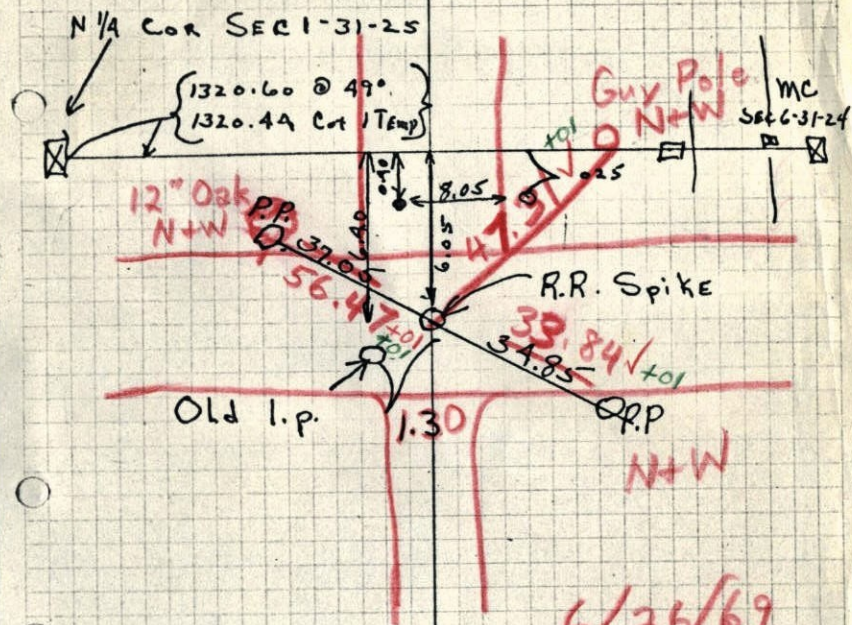 N 1/4 COR SEC 1-31-25
1320.60 @ 49°
1320.44 Cor 1 TEmp
Guy Pole
N+W
MC
SEC 6-31-24
+01
.025
47.31 ✓
12" Oak
N+W
P.P.
8.05
6.05
37.05
56.47
+01
+01
R.R. SpikE
33.84 ✓
34.85
+01
Old I.p.
1.30
P.P
N+W
6/26/69